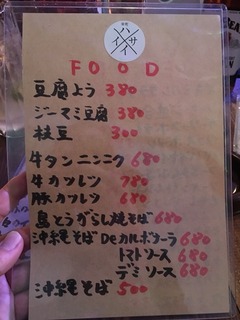 ハイサイ
FOOD
豆腐よう 380
ジーマミ豆腐 380
枝豆 300
牛タンニンニク 680
牛カツレツ 780
豚カツレツ 680
島とうがらし焼そば 680
沖縄そばDeカルボナーラ 680
トマトソース 680
デミソース 680
沖縄そば 500